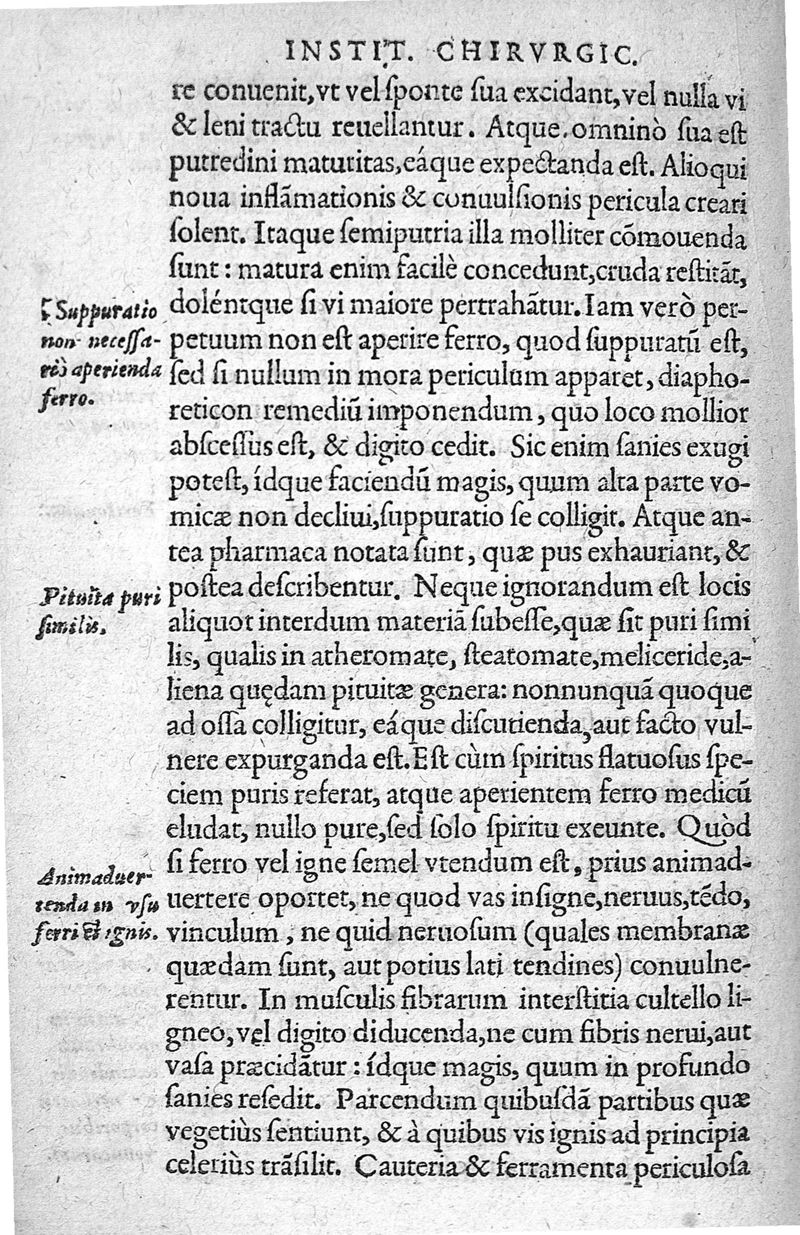 INSTIT. CHIRVRGIC.
re conuenit, vt vel ſponte ſua excidant, vel nulla vi
& leni tractu reuellantur. Atque omninò ſua eſt
putredini maturitas, eáque expectanda eſt. Alioqui
noua inflãmationis & conuulſionis pericula creari
ſolent. Itaque ſemiputria illa molliter cõmouenda
ſunt: matura enim facilè concedunt, cruda reſtitãt,
doléntque ſi vi maiore pertrahãtur. Iam verò per-
petuum non eſt aperire ferro, quod ſuppuratũ eſt,
ſed ſi nullum in mora periculum apparet, diapho-
reticon remediũ imponendum, quo loco mollior
abſceſſus eſt, & digito cedit. Sic enim ſanies exugi
poteſt, ídque faciendũ magis, quum alta parte vo-
micæ non decliui, ſuppuratio ſe colligit. Atque an-
tea pharmaca notata ſunt, quæ pus exhauriant, &
poſtea deſcribentur. Neque ignorandum eſt locis
aliquot interdum materiã ſubeſſe, quæ ſit puri ſimi
lis, qualis in atheromate, ſteatomate, meliceride, a-
liena quędam pituitæ genera: nonnunquã quoque
ad oſſa colligitur, eáque diſcutienda, aut facto vul-
nere expurganda eſt. Eſt cùm ſpiritus flatuoſus ſpe-
ciem puris referat, atque aperientem ferro medicũ
eludat, nullo pure, ſed ſolo ſpiritu exeunte. Quòd
ſi ferro vel igne ſemel vtendum eſt, prius animad-
uertere oportet, ne quod vas inſigne, neruus, tẽdo,
vinculum, ne quid neruoſum (quales membranæ
quædam ſunt, aut potius lati tendines) conuulne-
rentur. In muſculis fibrarum interſtitia cultello li-
gneo, vel digito diducenda, ne cum fibris nerui, aut
vaſa præcidãtur: ídque magis, quum in profundo
ſanies reſedit. Parcendum quibuſdã partibus quæ
vegetiùs ſentiunt, & à quibus vis ignis ad principia
celeriùs trãſilit. Cauteria & ferramenta periculoſa
Suppuratio
non neceſſa-
riò aperienda
ferro.
Pituita puri
ſimilis.
Animaduer-
tenda in vſu
ferri & ignis.